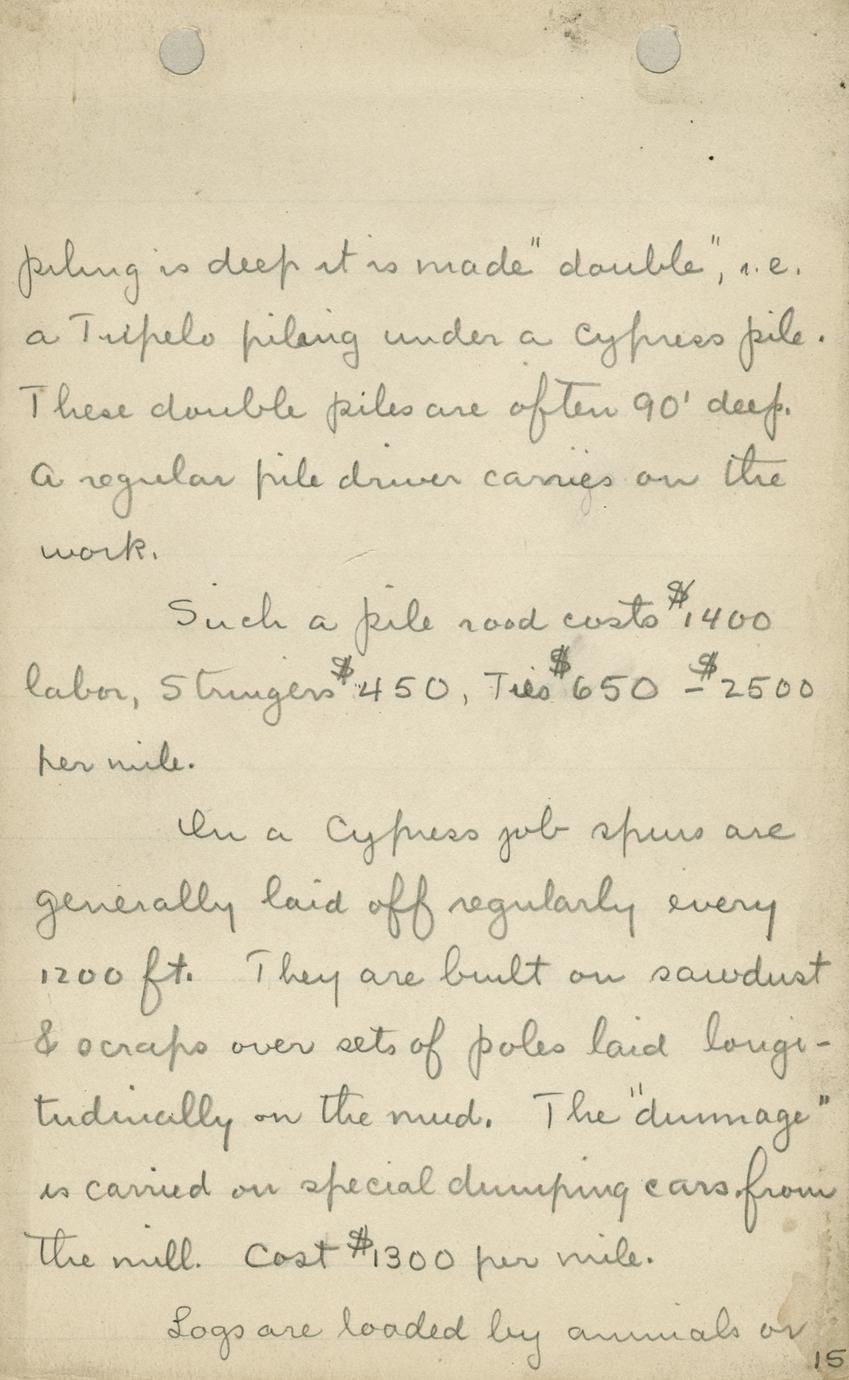 piling is deep it is made "double", i.e.
a Tupelo piling under a Cypress pile.
These double piles are often 90' deep.
A regular pile driver carries on the
work.
Such a pile road costs $1400
labor, Stringers $450, Ties $650 - $2500
per mile.
In a Cypress job spurs are
generally laid off regularly every
1200 ft. They are built on sawdust
& scraps over sets of poles laid longi-
tudinally on the mud. The "dunnage"
is carried on special dumping cars from
the mill. Cost $1300 per mile.
Logs are loaded by animals or
15